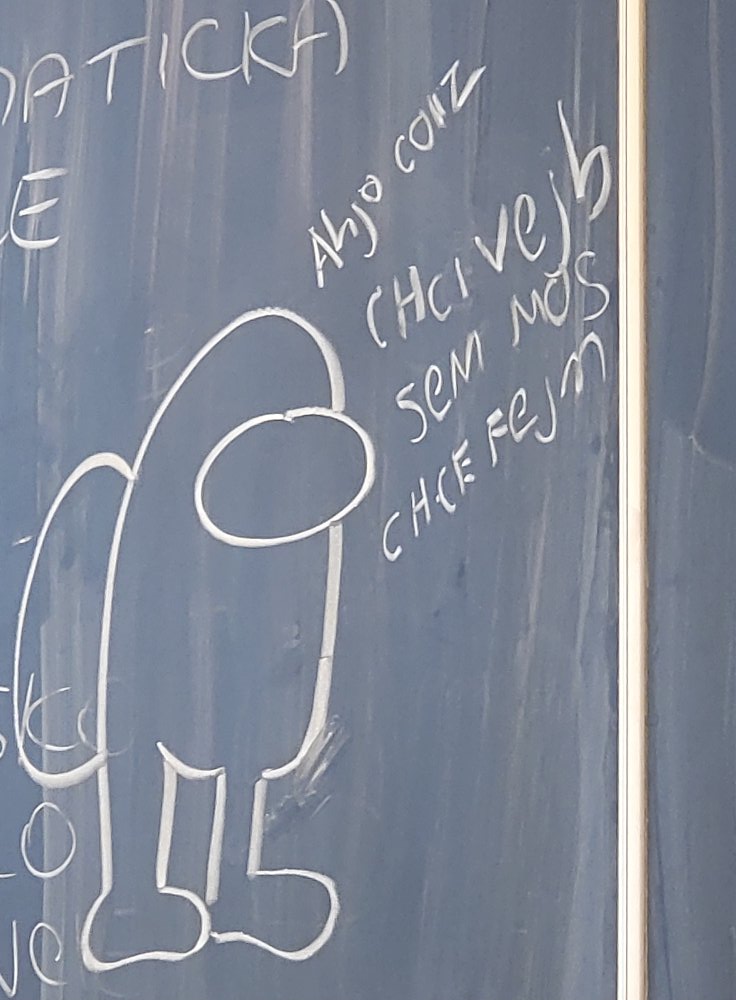 ATICKÁ)
E
Ahjo conz
CHCI vejb
sem mos
CHCE FEJM
SKO
LO